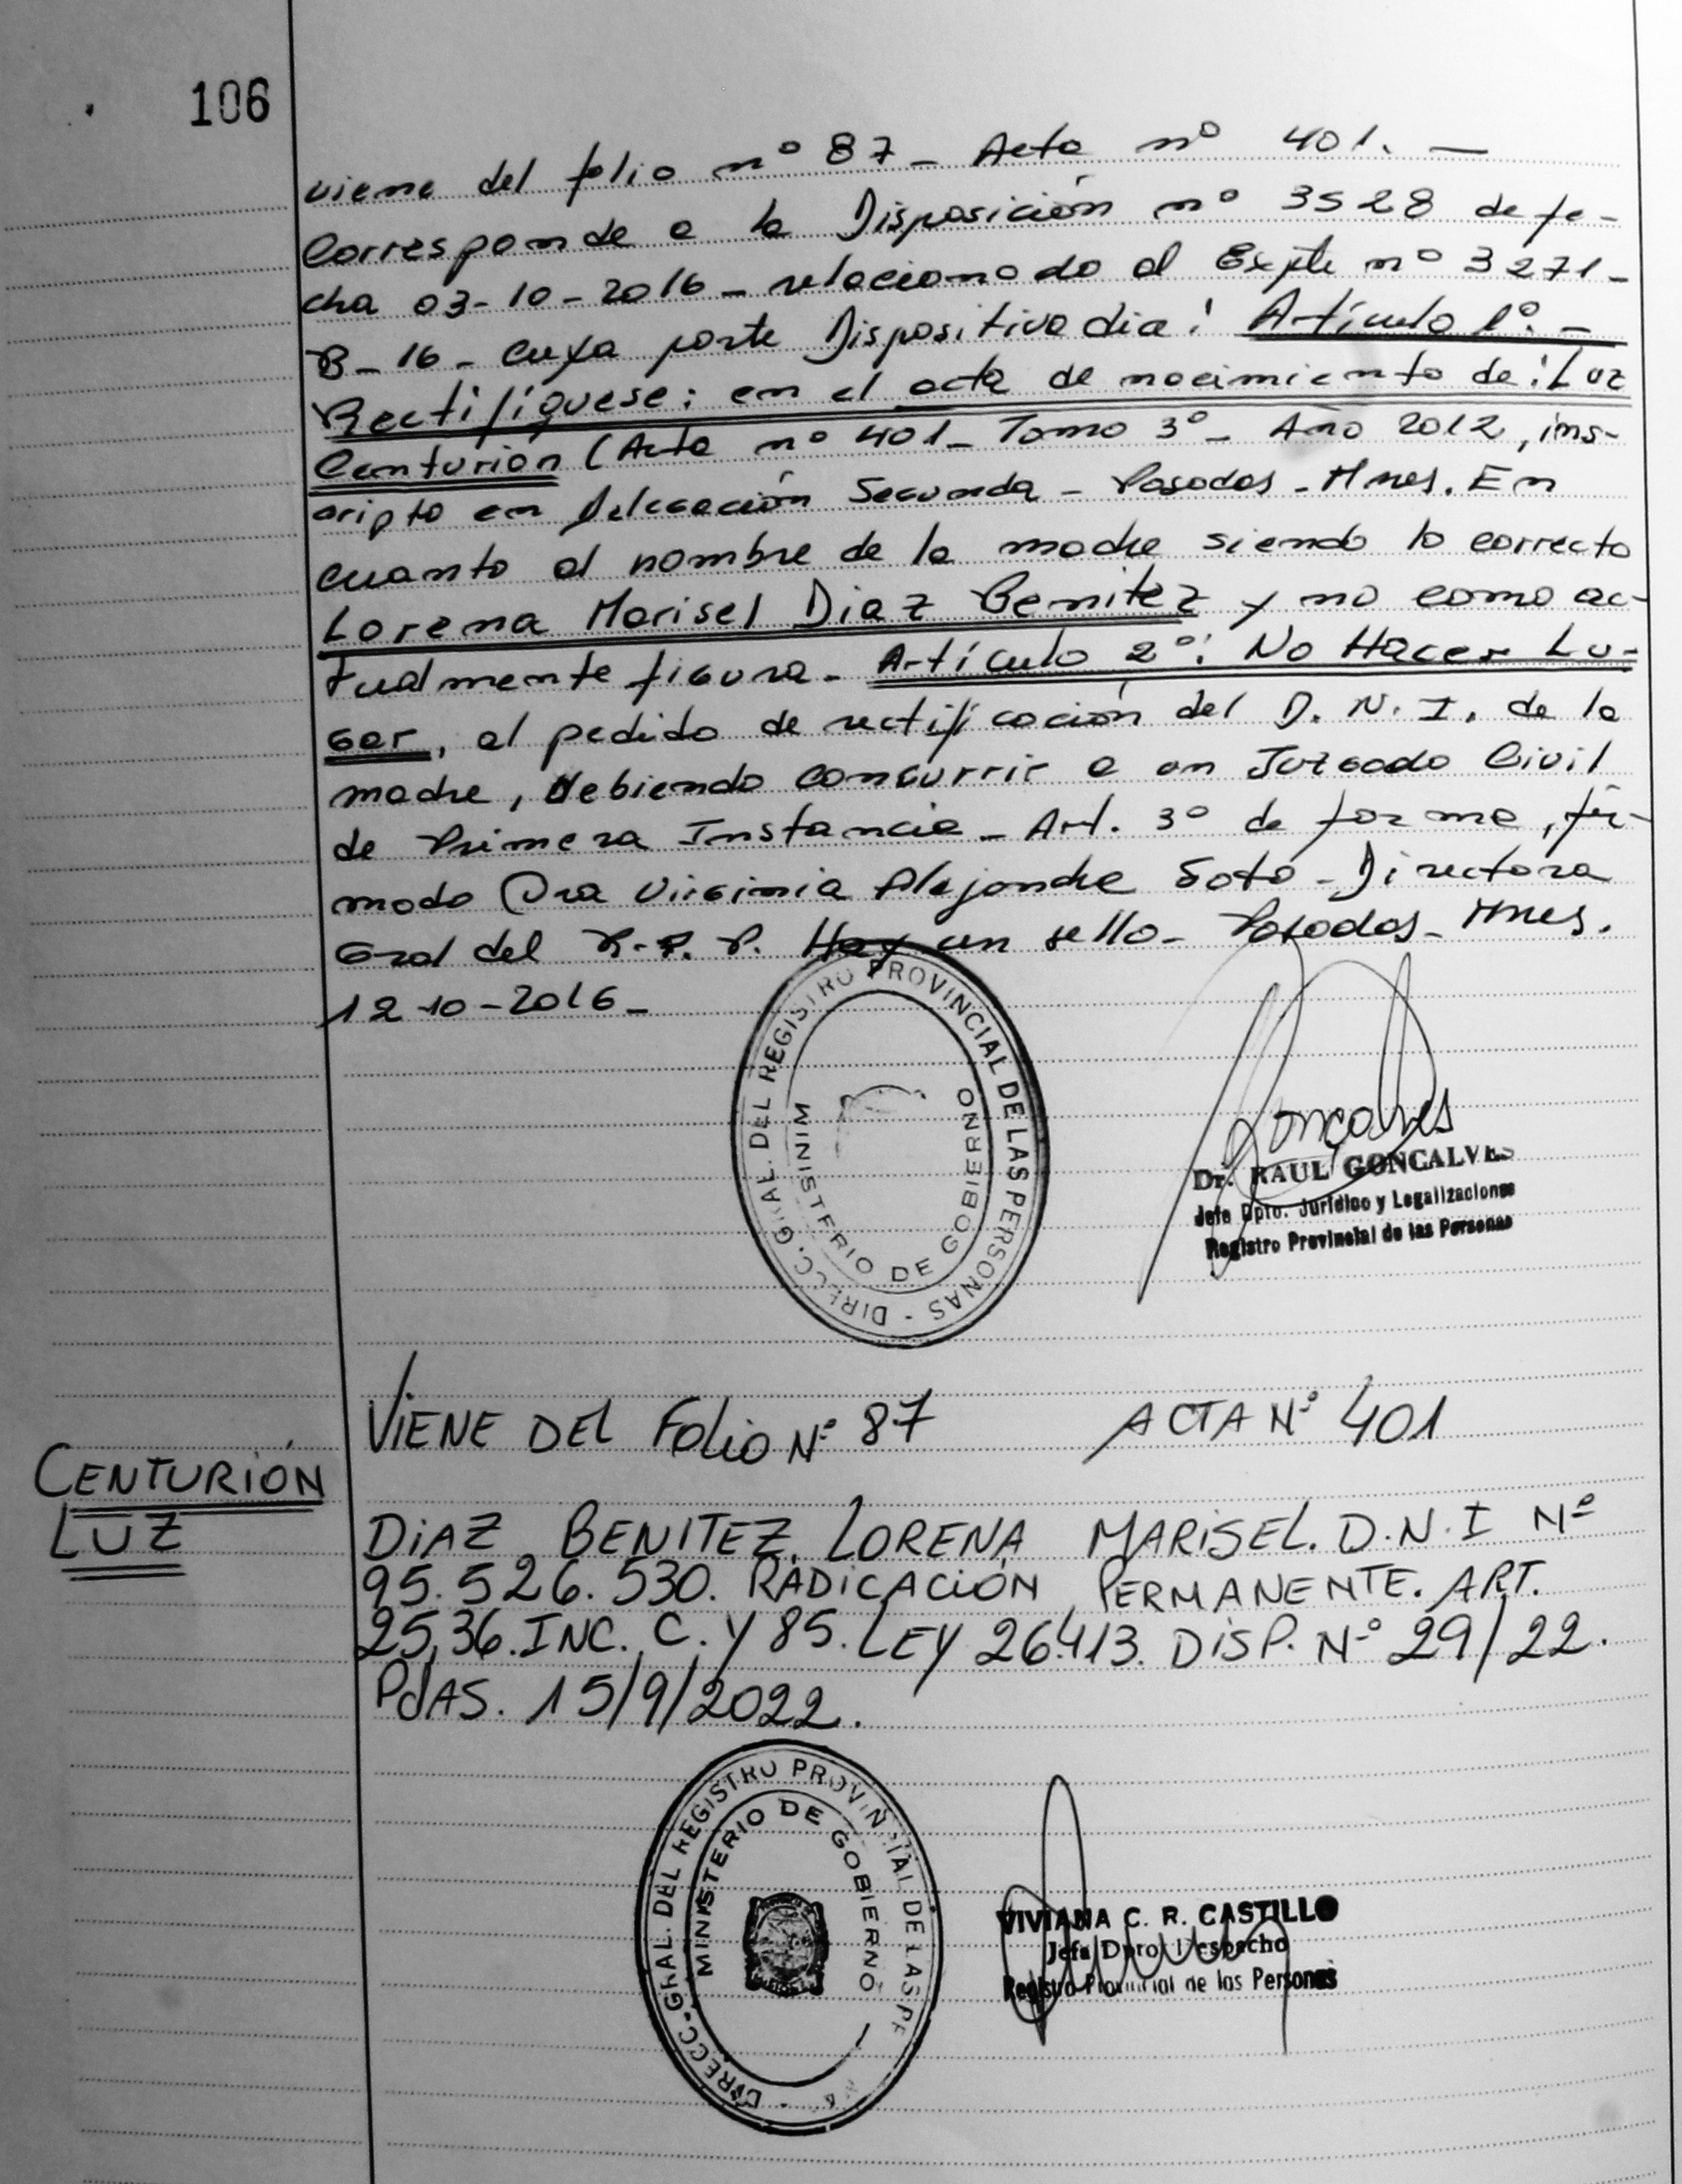 106
viene del folio nº 87 - Acta nº 401. -
Corresponde a la Disposición nº 3528 de fe-
cha 03-10-2016 - relacionado al Expte nº 3271-
R-16 - cuya parte Dispositiva dia: Artículo 1º. -
Rectifíquese: en el acta de nacimiento de: Luz
Centurión (Acta nº 401 - Tomo 3º - Año 2012, ins-
cripto en Delegación Segunda - Posadas - Mnes. En
cuanto al nombre de la madre siendo lo correcto
Lorena Marisel Diaz Benitez y no como ac-
tualmente figura. Artículo 2º: No Hacer Lu-
gar, al pedido de rectificación del D. N. I. de la
madre, debiendo concurrir a un Juzgado Civil
de Primera Instancia - Art. 3º de forma, fir-
mado Dra Virginia Alejandra Soto - Directora
Gral del R. P. P. Hay un sello - Posadas - Mnes.
12-10-2016 -
DIRECC. GRAL. DEL REGISTRO PROVINCIAL DE LAS PERSONAS -
MINISTERIO DE GOBIERNO
Goncalves
Dr. RAUL GONCALVES
Jefe Dpto. Jurídico y Legalizaciones
Registro Provincial de las Personas
VIENE DEL FOLIO Nº 87 ACTA Nº 401
CENTURIÓN
LUZ
DIAZ BENITEZ, LORENA MARISEL. D.N.I Nº
95.526.530. RADICACIÓN PERMANENTE. ART.
25,36. INC. C. Y 85. LEY 26.413. DISP. Nº 29/22.
PdAS. 15/9/2022.
DIRECC. GRAL. DEL REGISTRO PROVINCIAL DE LAS
MINISTERIO DE GOBIERNO
VIVIANA C. R. CASTILLO
Jefa Dpto. Despacho
Registro Provincial de las Personas